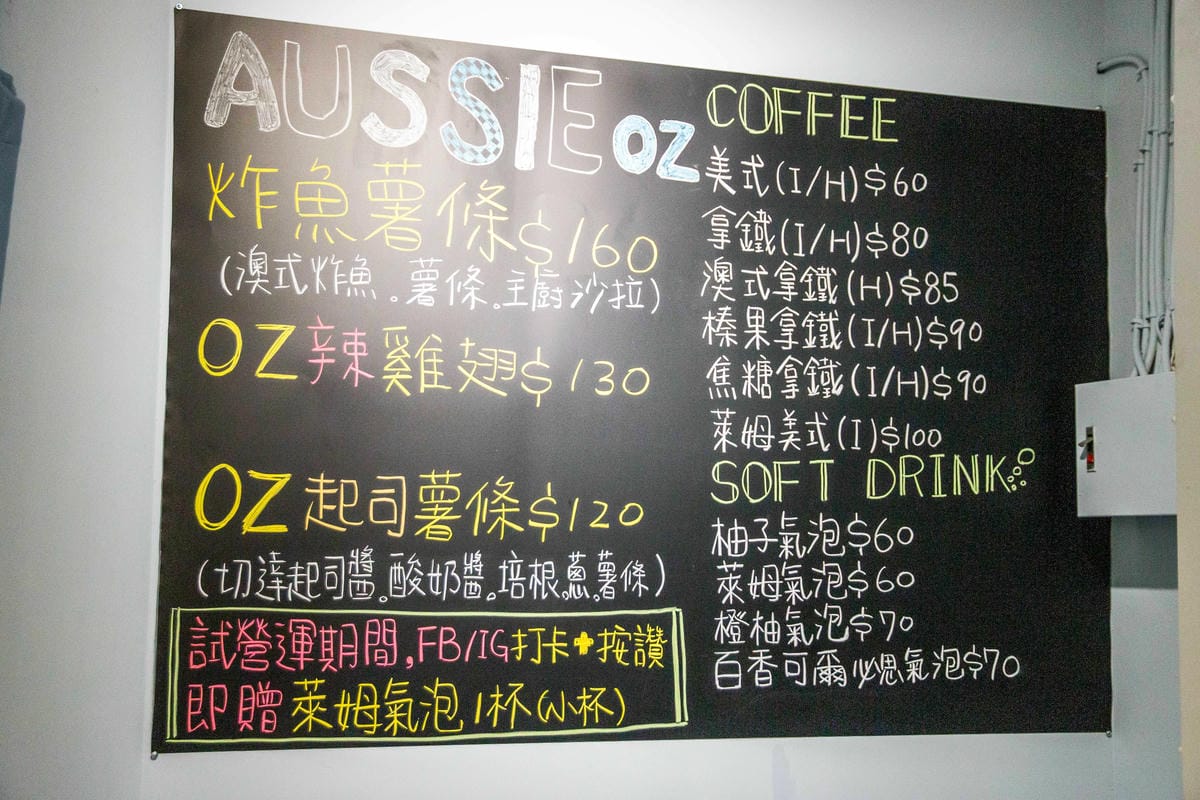 AUSSIE OZ
炸魚薯條$160
(澳式炸魚。薯條。主廚沙拉)
OZ辣雞翅$130
OZ起司薯條$120
(切達起司醬。酸奶醬。培根。蔥。薯條)
試營運期間,FB/IG打卡+按讚
即贈萊姆氣泡1杯(小杯)
COFFEE
美式(I/H)$60
拿鐵(I/H)$80
澳式拿鐵(H)$85
榛果拿鐵(I/H)$90
焦糖拿鐵(I/H)$90
萊姆美式(I)$100
SOFT DRINK
柚子氣泡$60
萊姆氣泡$60
橙柚氣泡$70
百香可爾必思氣泡$70